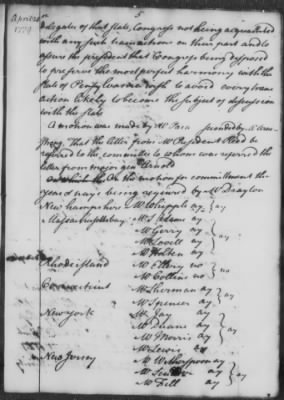 April 24
1779
5
delegates of that state, Congress not being acquainted
with any such transactions on their part and to
assure the president that Congress being disposed
to preserve the most perfect harmony with the
state of Pensylvania wish to avoid every trans
action likely to become the subject of discussion
with the state
A motion was made by Mr Paca seconded by
That the letter from Mr President Reed be
referred to the committee to whom was referred the
letter from major gen Arnold
On the motion for commitment the
yeas & nays being required by Mr Drayton
New hampshire Mr Whipple ay } ay
Massachusettsbay Mr S Adams ay
Mr Gerry ay } ay
Mr Lovell ay
Mr Holten ay
Rhodeisland Mr Ellery no } no
Mr Collins no
Connecticut Mr Sherman ay } ay
Mr Spencer ay
New York Mr Jay ay
Mr Duane ay } ay
Mr Morris ay
Mr Lewis
New Jersey Mr Witherspoon ay
Mr ay } ay
Mr Fell ay